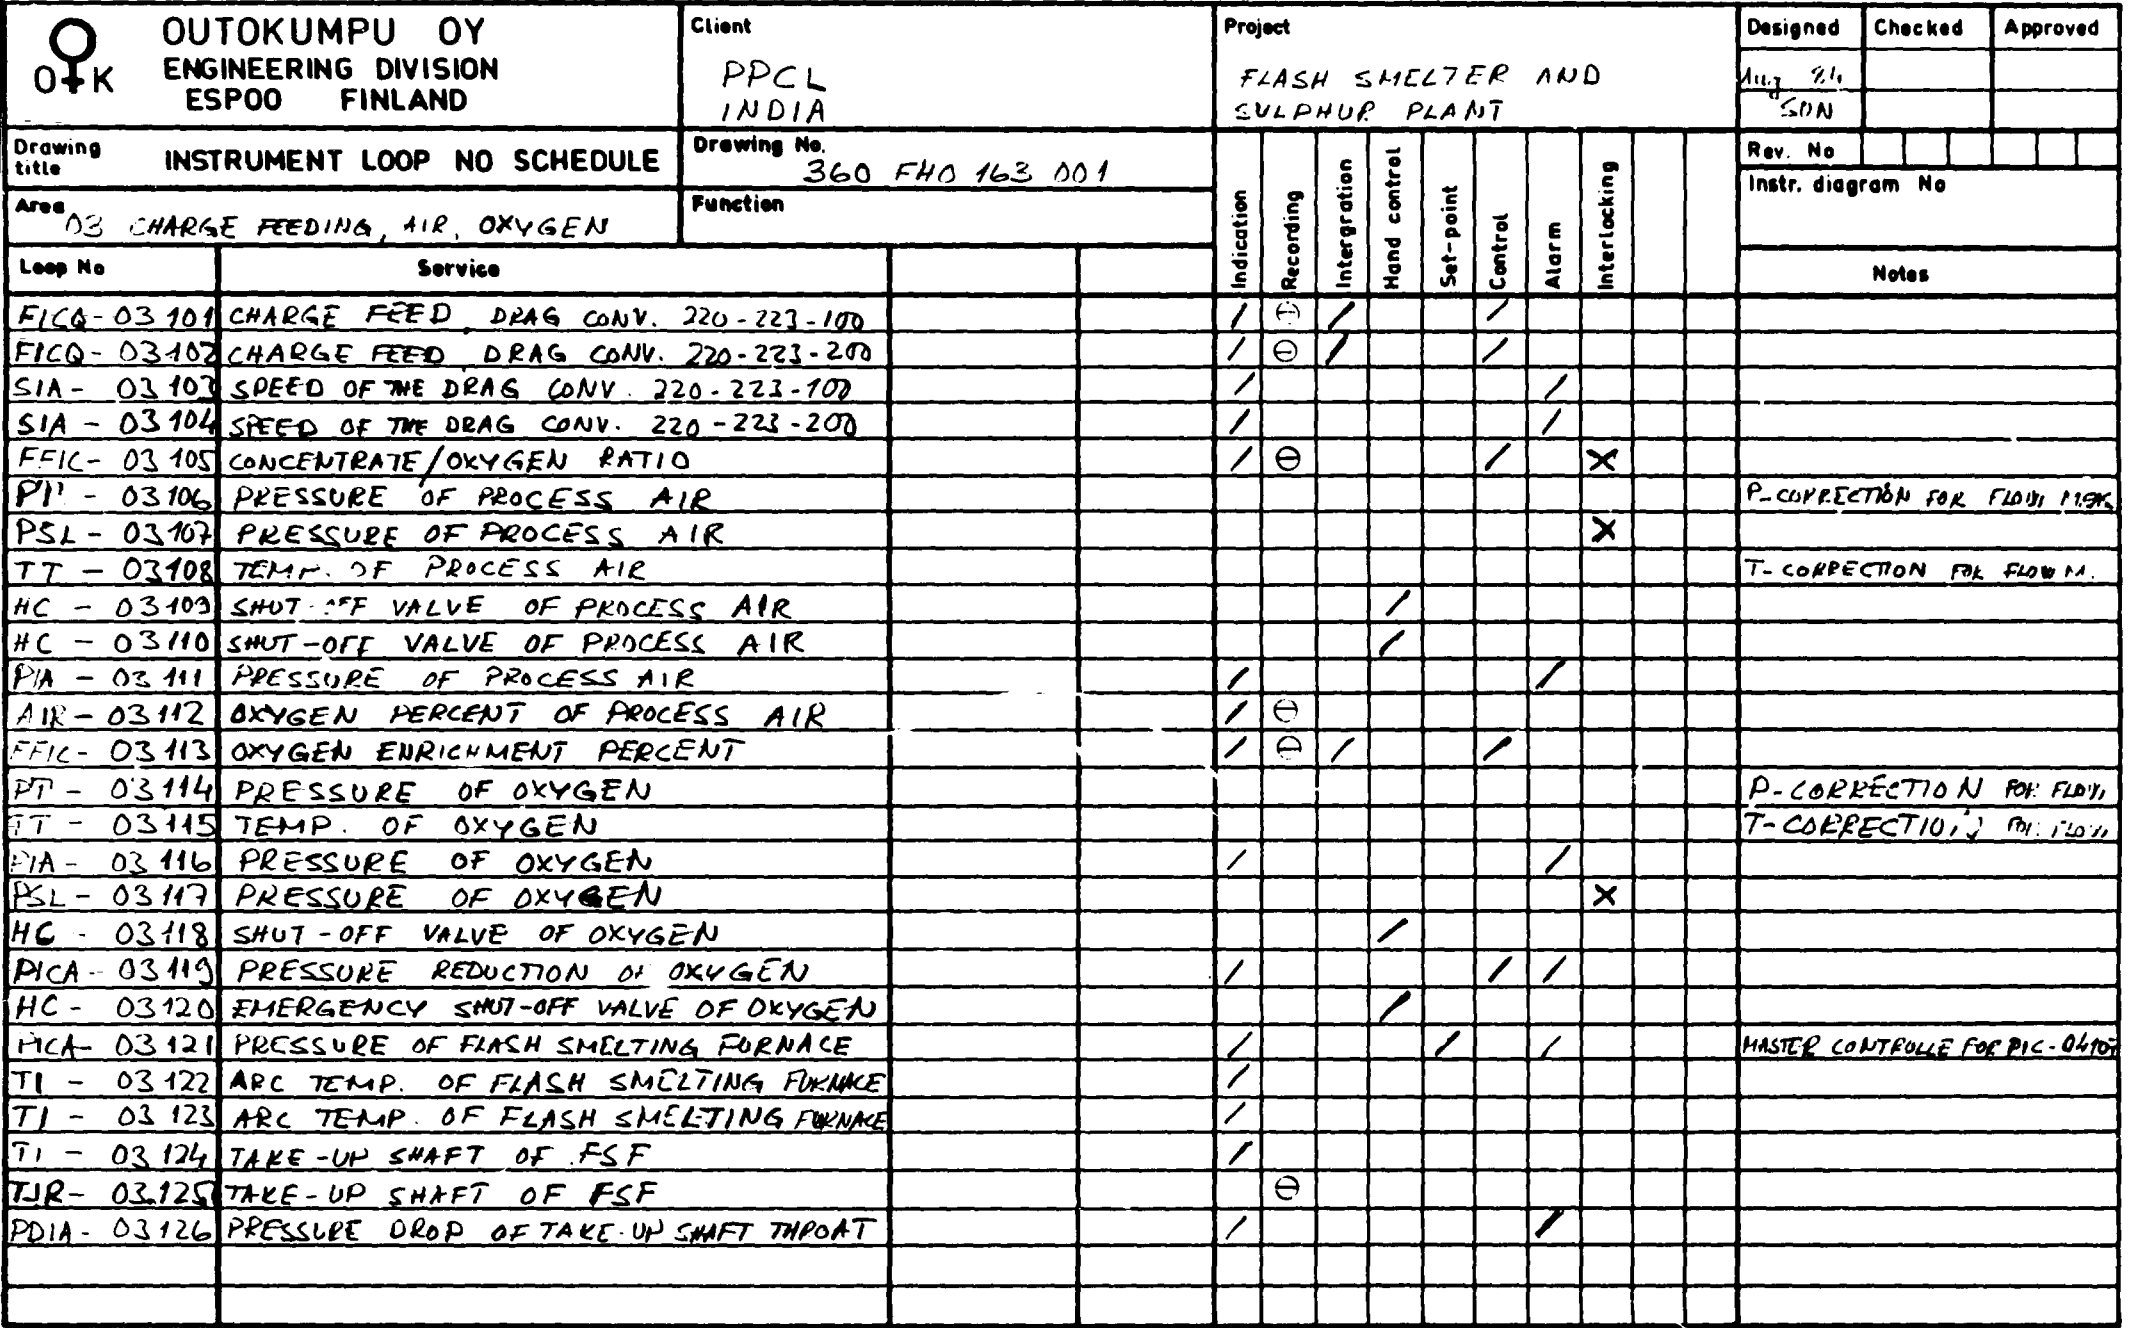 OUTOKUMPU OY
ENGINEERING DIVISION
ESPOO FINLAND
O K
Client
PPCL
INDIA
Project
FLASH SMELTER AND
SULPHUR PLANT
Designed Checked Approved
Aug 84
SON
Drawing title INSTRUMENT LOOP NO SCHEDULE
Drawing No.
360 FHO 163 001
Rev. No
Instr. diagram No
Area
03 CHARGE FEEDING, AIR, OXYGEN
Function
Loop No Service Indication Recording Intergration Hand control Set-point Control Alarm Interlocking Notes
FICQ-03101 CHARGE FEED DRAG CONV. 220-223-100 / ⊖ / /
FICQ-03102 CHARGE FEED DRAG CONV. 220-223-200 / ⊖ / /
SIA - 03103 SPEED OF THE DRAG CONV. 220-223-100 / /
SIA - 03104 SPEED OF THE DRAG CONV. 220-223-200 / /
FFIC- 03105 CONCENTRATE/OXYGEN RATIO / ⊖ / X
03106 PRESSURE OF PROCESS AIR P-CORRECTION FOR FLOW
PSL - 03107 PRESSURE OF PROCESS AIR X
TT - 03108 TEMP. OF PROCESS AIR T-CORRECTION FOR FLOW M.
HC - 03109 SHUT-OFF VALVE OF PROCESS AIR /
HC - 03110 SHUT-OFF VALVE OF PROCESS AIR /
PIA - 03111 PRESSURE OF PROCESS AIR / /
AIR - 03112 OXYGEN PERCENT OF PROCESS AIR / ⊖
FFIC- 03113 OXYGEN ENRICHMENT PERCENT / ⊖ / /
PT - 03114 PRESSURE OF OXYGEN P-CORRECTION FOR FLOW
TT - 03115 TEMP. OF OXYGEN T-CORRECTION FOR FLOW
PIA - 03116 PRESSURE OF OXYGEN / /
PSL - 03117 PRESSURE OF OXYGEN X
HC - 03118 SHUT-OFF VALVE OF OXYGEN /
PICA- 03119 PRESSURE REDUCTION OF OXYGEN / / /
HC - 03120 EMERGENCY SHUT-OFF VALVE OF OXYGEN /
03121 PRESSURE OF FLASH SMELTING FURNACE / / / MASTER CONTROLLE FOR PIC-04107
TI - 03122 ARC TEMP. OF FLASH SMELTING FURNACE /
TI - 03123 ARC TEMP. OF FLASH SMELTING FURNACE /
TI - 03124 TAKE-UP SHAFT OF FSF /
TJR- 03125 TAKE-UP SHAFT OF FSF ⊖
PDIA- 03126 PRESSURE DROP OF TAKE-UP SHAFT THROAT / /